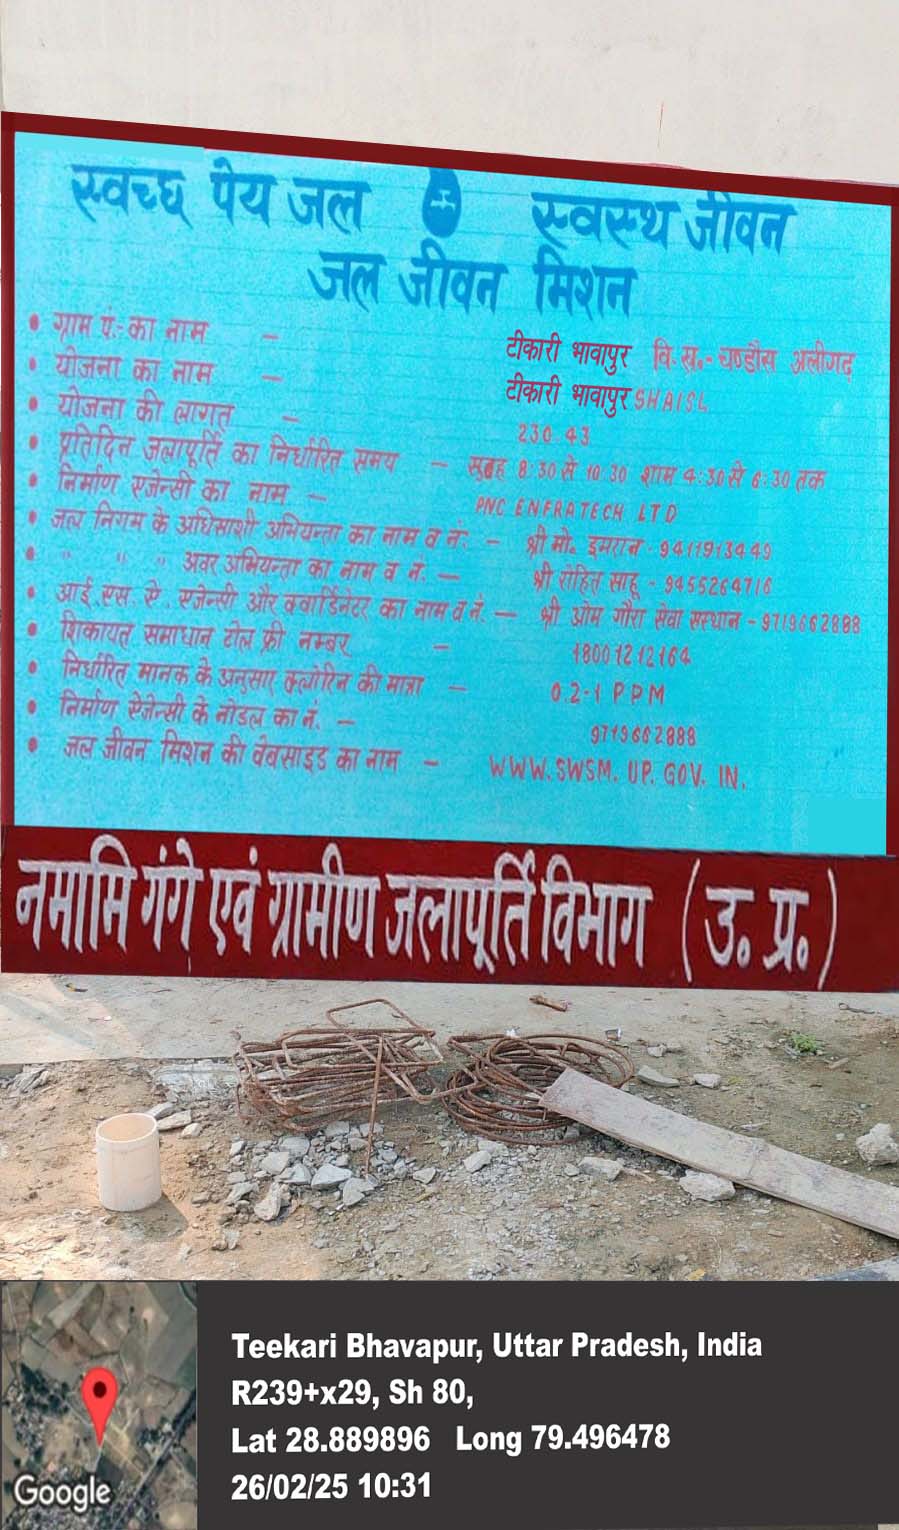 स्वच्छ पेय जल स्वस्थ जीवन
जल जीवन मिशन
• ग्राम पं.- का नाम - टीकारी भावापुर वि.ख.- चण्डौस अलीगढ़
• योजना का नाम - टीकारी भावापुर SHAISL
• योजना की लागत - 230.43
• प्रतिदिन जलापूर्ति का निर्धारित समय - सुबह 8:30 से 10.30 शाम 4:30 से 6:30 तक
• निर्माण एजेन्सी का नाम - PNC ENFRATECH LTD
• जल निगम के अधिसाशी अभियन्ता का नाम व नं. - श्री मो. इमरान - 9411913449
• " " " अवर अभियन्ता का नाम व नं. - श्री रोहित साहू - 9455264716
• आई. एस. ऐ. एजेन्सी और क्वार्डिनेटर का नाम व नं. - श्री ओम गौरा सेवा सस्थान - 9719662888
• शिकायत समाधान टोल फ्री नम्बर - 18001212164
• निर्धारित मानक के अनुसार क्लोरिन की मात्रा - 0.2-1 PPM
• निर्माण ऐजेन्सी के नोडल का नं. - 9719662888
• जल जीवन मिशन की वेबसाइड का नाम - WWW.SWSM.UP.GOV.IN.
नमामि गंगे एवं ग्रामीण जलापूर्ति विभाग (उ.प्र.)
Teekari Bhavapur, Uttar Pradesh, India
R239+x29, Sh 80,
Lat 28.889896 Long 79.496478
26/02/25 10:31
Google